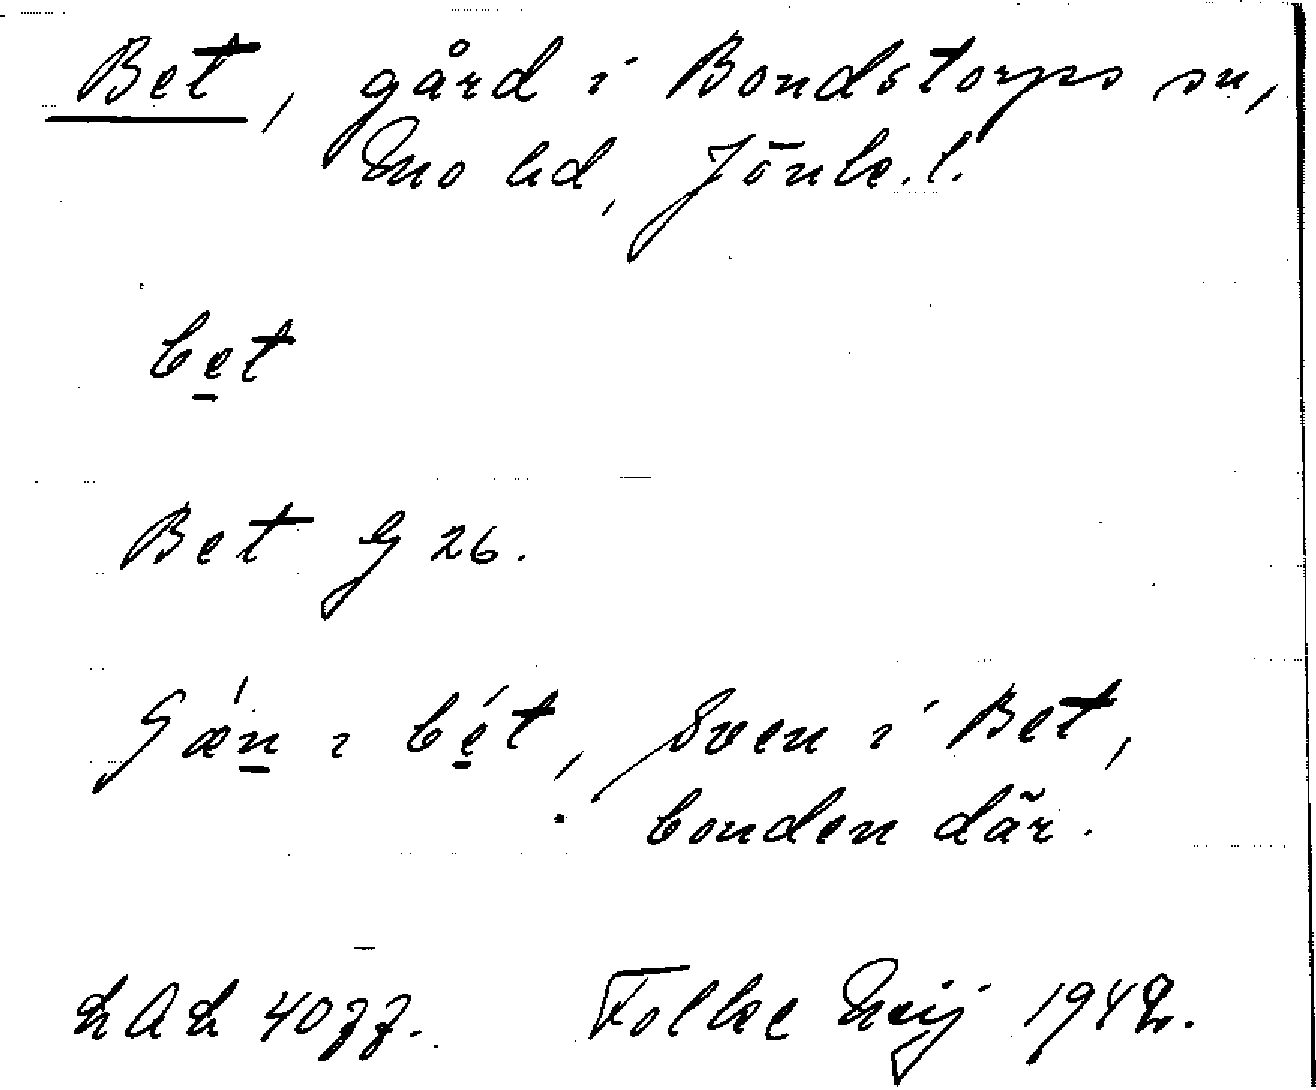 Bet, gård i Bondstorps sn,
Mo hd, Jönk. l.
bet
Bet G 26.
Sæn i bét, Sven i Bet,
bonden där.
LAL 4077. Folke Meij 1942.